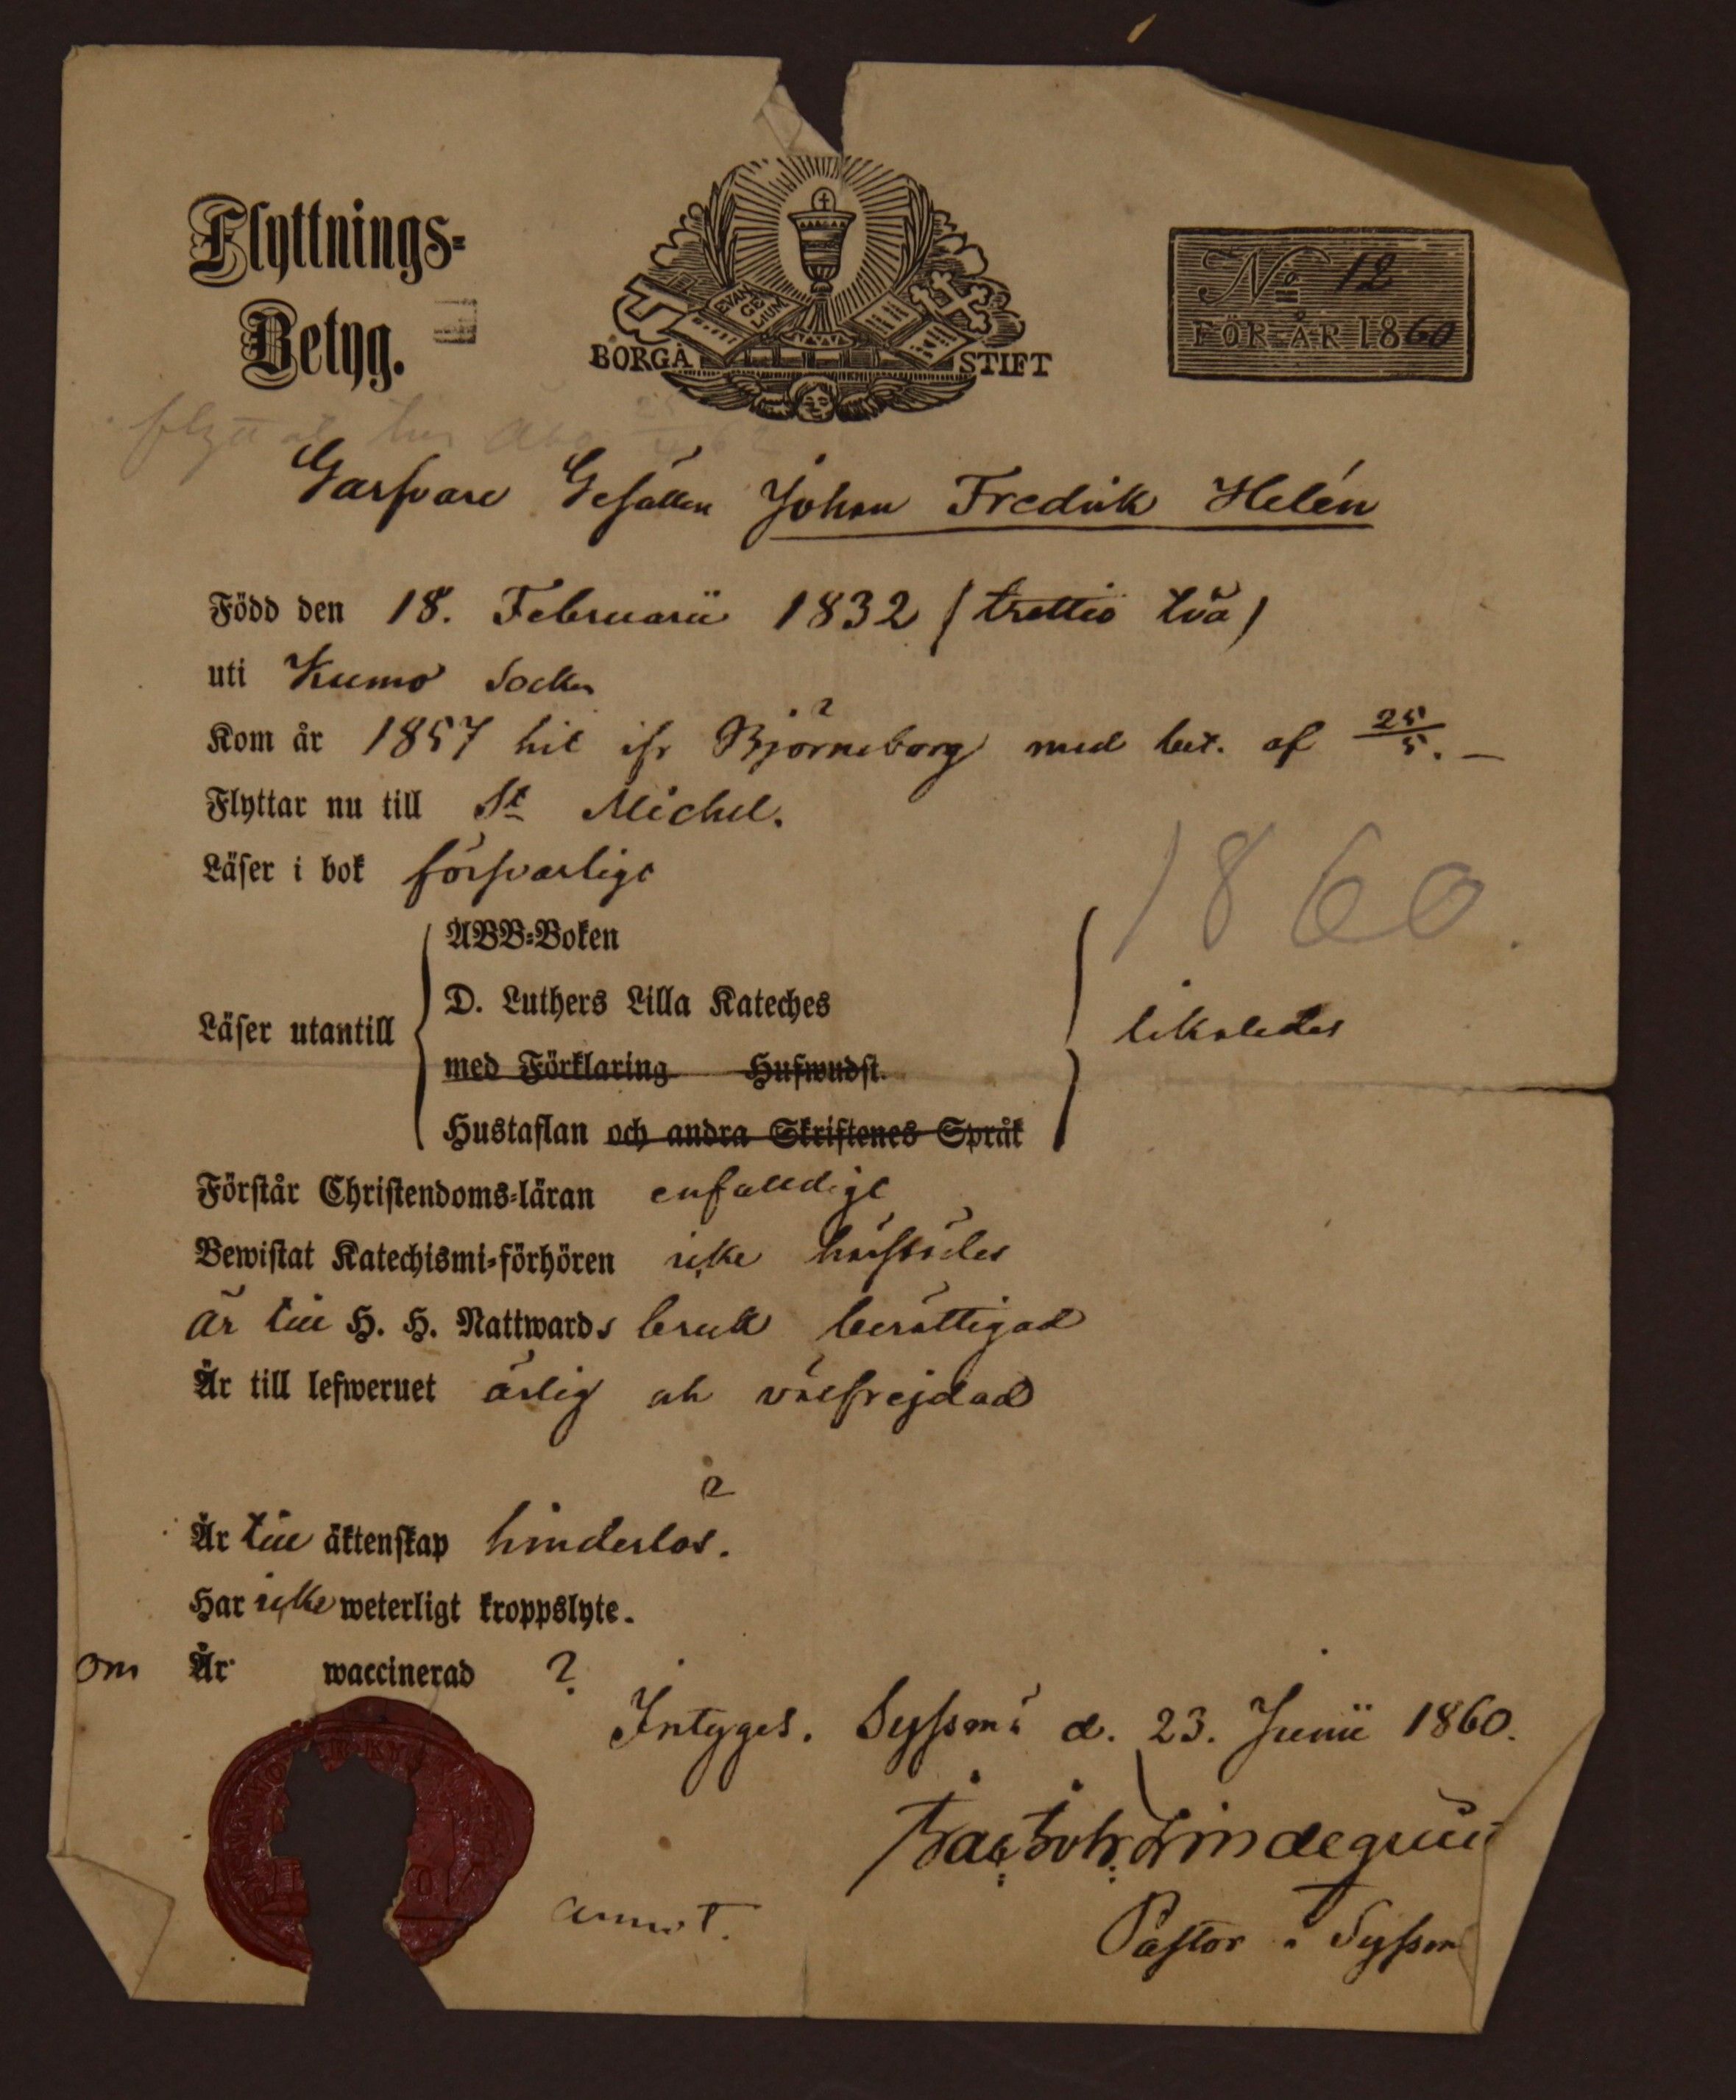 Flyttnings-
Betyg.
EVAN
GE
LIUM
BORGÅ STIFT
No 12
FÖR ÅR 1860
flytt
Garfvare Gesällen Johan Fredrik Helén
Född den 18. Februarii 1832 (trettio två)
uti Kumo Socken
Kom år 1857 hit ifr Björneborg med bet. af 25/5. —
Flyttar nu till St Michel.
Läser i bok försvarligt
1860.
Läser utantill
ABB-Boken
D. Luthers Lilla Kateches
med Förklaring Hufwudst.
Hustaflan och andra Skriftenes Språk
likaledes
Förstår Christendoms-läran enfaldigt
Bewistat Katechismi-förhören icke
är till H. H. Nattwards bruk berättigad
Är till lefwernet ärlig och välfrejdad
Är till äktenskap hinderlös.
Har icke weterligt kroppslyte.
Om Är waccinerad ?
Intyges. Sysmä d. 23. Junii 1860.
Pastor i Sysmä